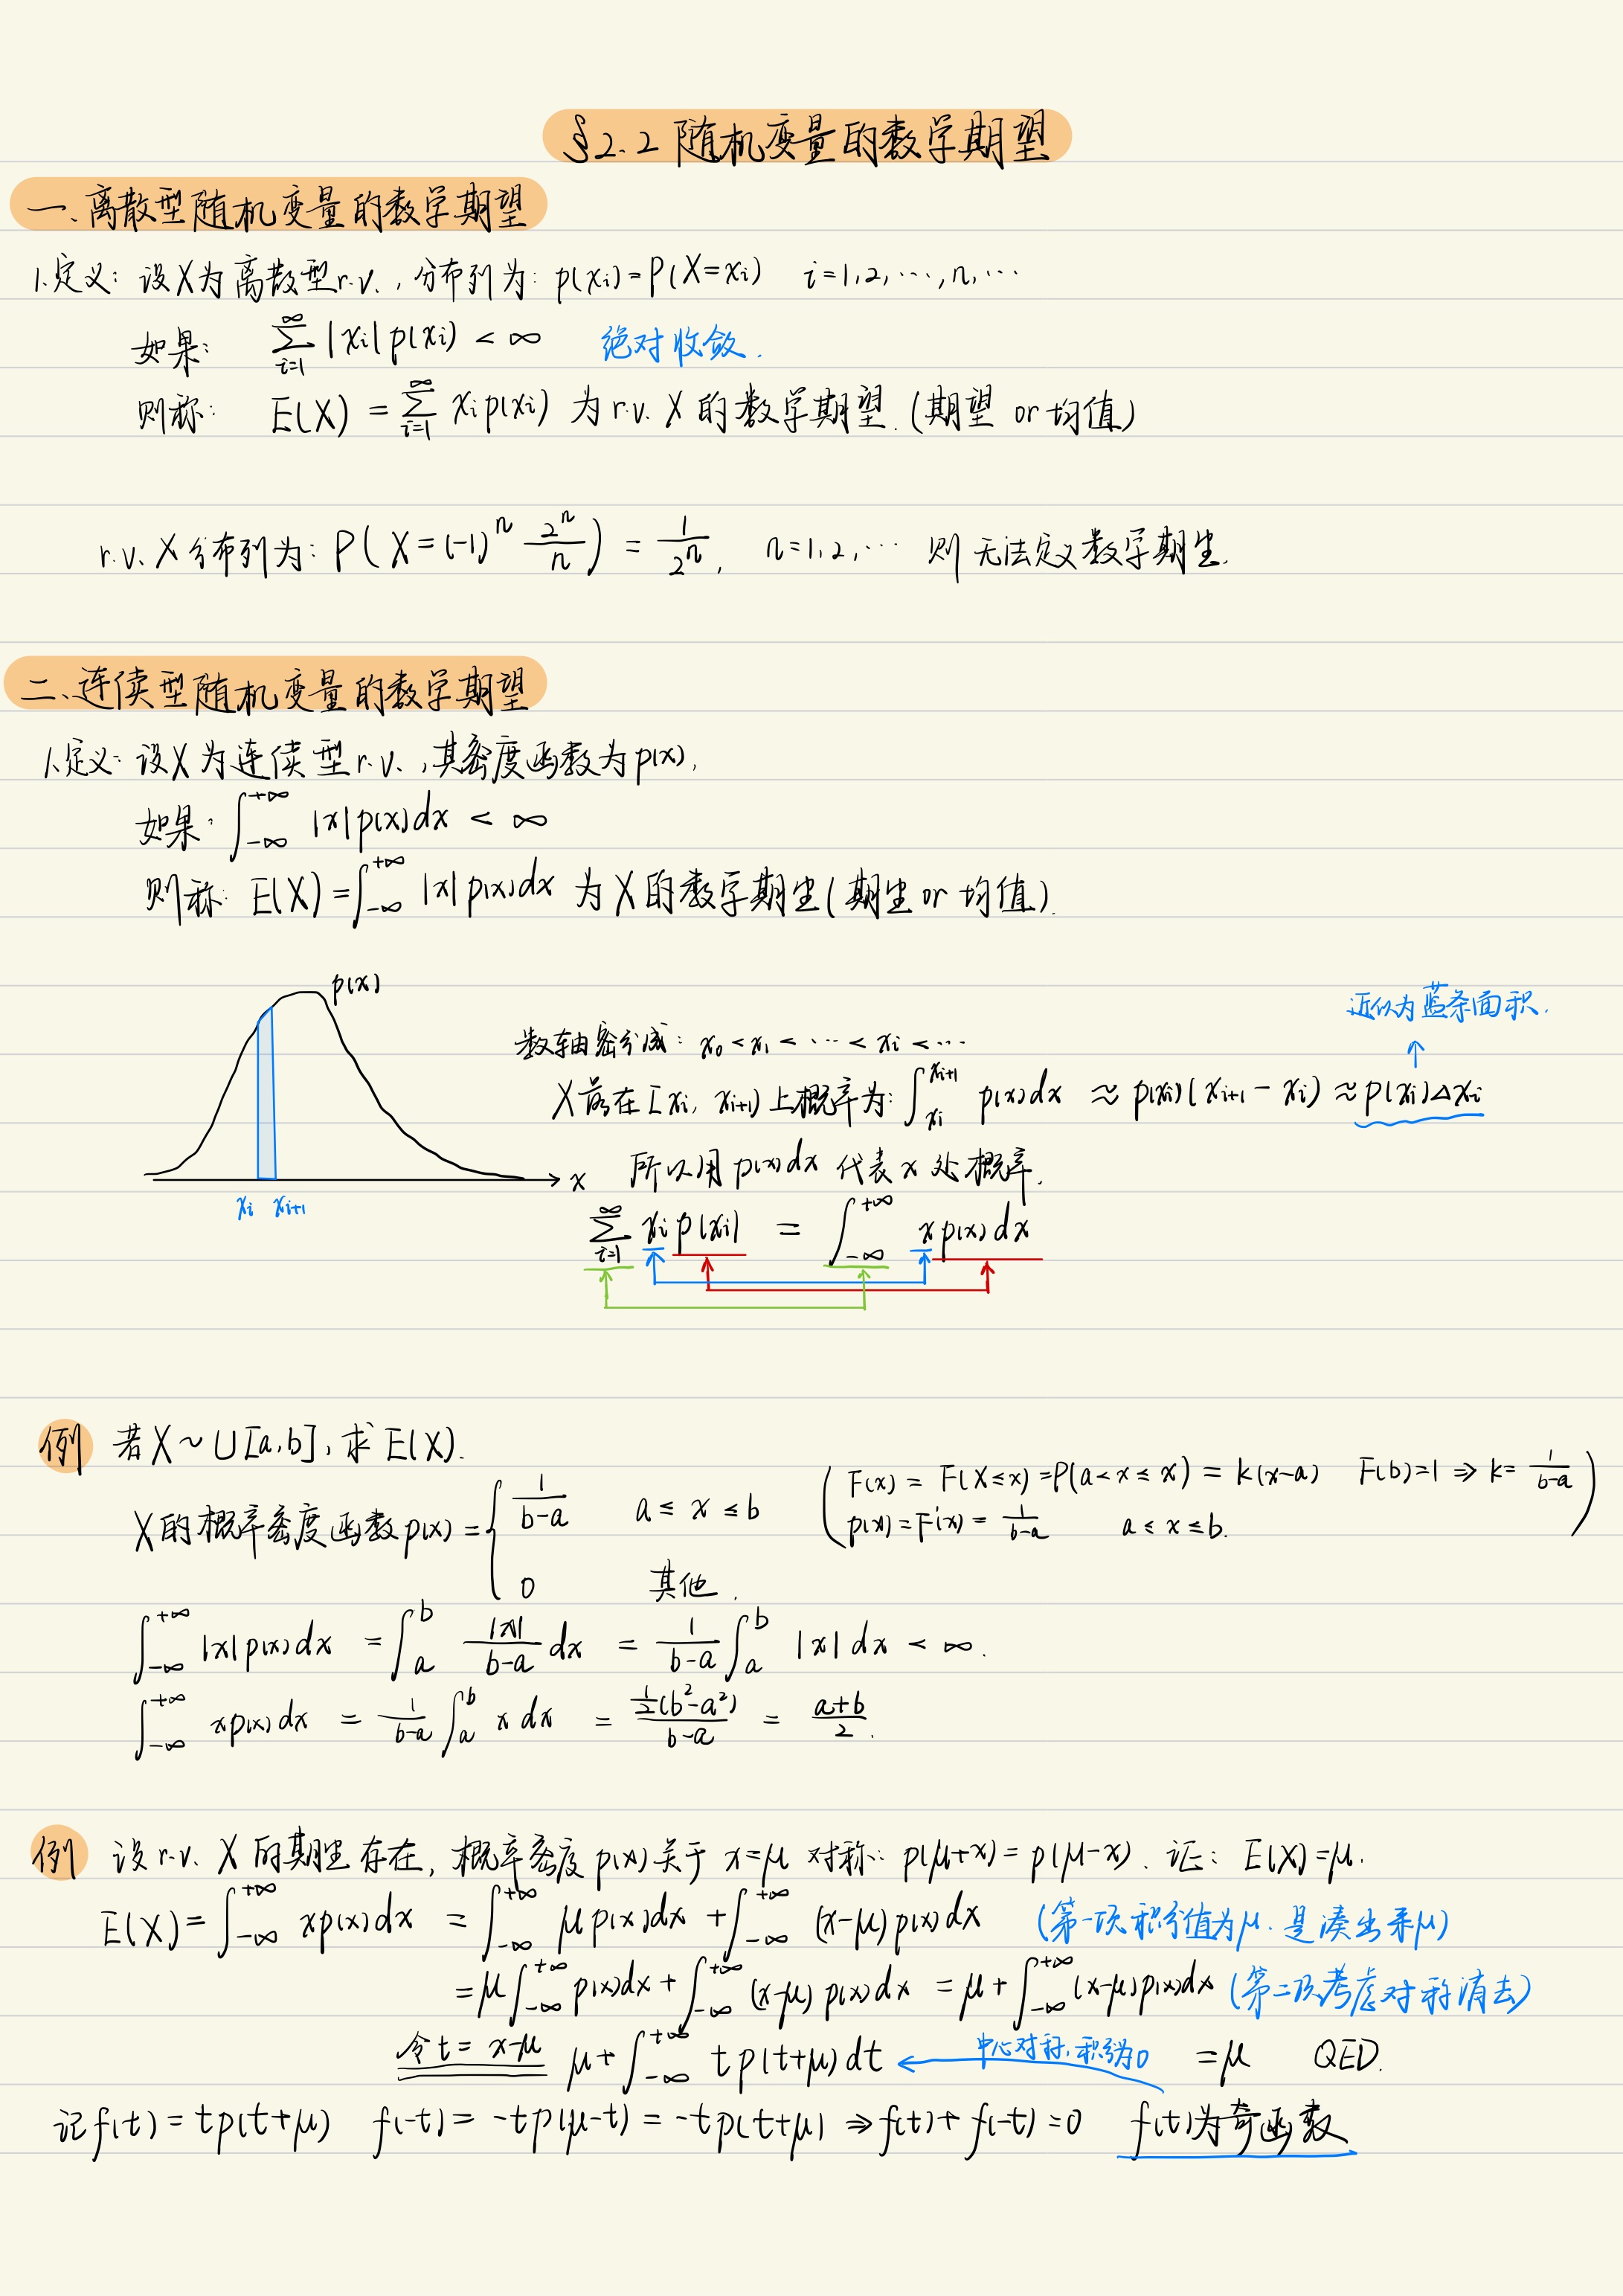 §2.2 随机变量的数学期望
一、离散型随机变量的数学期望
1.定义: 设X为离散型r.v.,分布列为: p(xi)=P(X=xi) i=1,2,⋯,n,⋯
如果: ∑_{i=1}^{∞} |xi| p(xi) < ∞ 绝对收敛.
则称: E(X) = ∑_{i=1}^{∞} xi p(xi) 为 r.v. X 的数学期望.(期望 or 均值)
r.v. X 分布列为: P(X=(-1)^n 2^n/n) = 1/2^n, n=1,2,⋯ 则无法定义数学期望.
二、连续型随机变量的数学期望
1.定义: 设X为连续型r.v.,其密度函数为p(x),
如果: ∫_{-∞}^{+∞} |x|p(x)dx < ∞
则称: E(X)=∫_{-∞}^{+∞} |x|p(x)dx 为X的数学期望(期望or均值).
p(x)
x
xi xi+1
近似为蓝条面积.
↑
数轴密分成: x0<x1<⋯<xi<⋯
X落在[xi, xi+1)上概率为: ∫_{xi}^{xi+1} p(x)dx ≈ p(xi)(xi+1-xi) ≈ p(xi)Δxi
所以用p(x)dx代表x处概率.
∑_{i=1}^{∞} xi p(xi) = ∫_{-∞}^{+∞} x p(x) dx
例 若X~U[a,b],求E(X).
X的概率密度函数p(x)={ 1/(b-a) a≤x≤b
0 其他.
( F(x)=F(X≤x)=P(a<x≤x)=k(x-a) F(b)=1⇒k=1/(b-a)
p(x)=F'(x)=1/(b-a) a≤x≤b. )
∫_{-∞}^{+∞} |x|p(x)dx = ∫_a^b |x|/(b-a) dx = 1/(b-a) ∫_a^b |x|dx < ∞.
∫_{-∞}^{+∞} xp(x)dx = 1/(b-a) ∫_a^b x dx = ½(b²-a²)/(b-a) = (a+b)/2.
例 设r.v. X的期望存在,概率密度p(x)关于x=μ对称: p(μ+x)=p(μ-x). 证: E(X)=μ.
E(X)=∫_{-∞}^{+∞} xp(x)dx = ∫_{-∞}^{+∞} μp(x)dx + ∫_{-∞}^{+∞} (x-μ)p(x)dx (第一项积分值为μ.是凑出来μ)
=μ∫_{-∞}^{+∞} p(x)dx + ∫_{-∞}^{+∞} (x-μ)p(x)dx = μ+∫_{-∞}^{+∞} (x-μ)p(x)dx (第二项考虑对称消去)
令t=x-μ μ+∫_{-∞}^{+∞} tp(t+μ)dt 中心对称,积分为0 =μ QED.
记f(t)=tp(t+μ) f(-t)=-tp(μ-t)=-tp(t+μ) ⇒f(t)+f(-t)=0 f(t)为奇函数